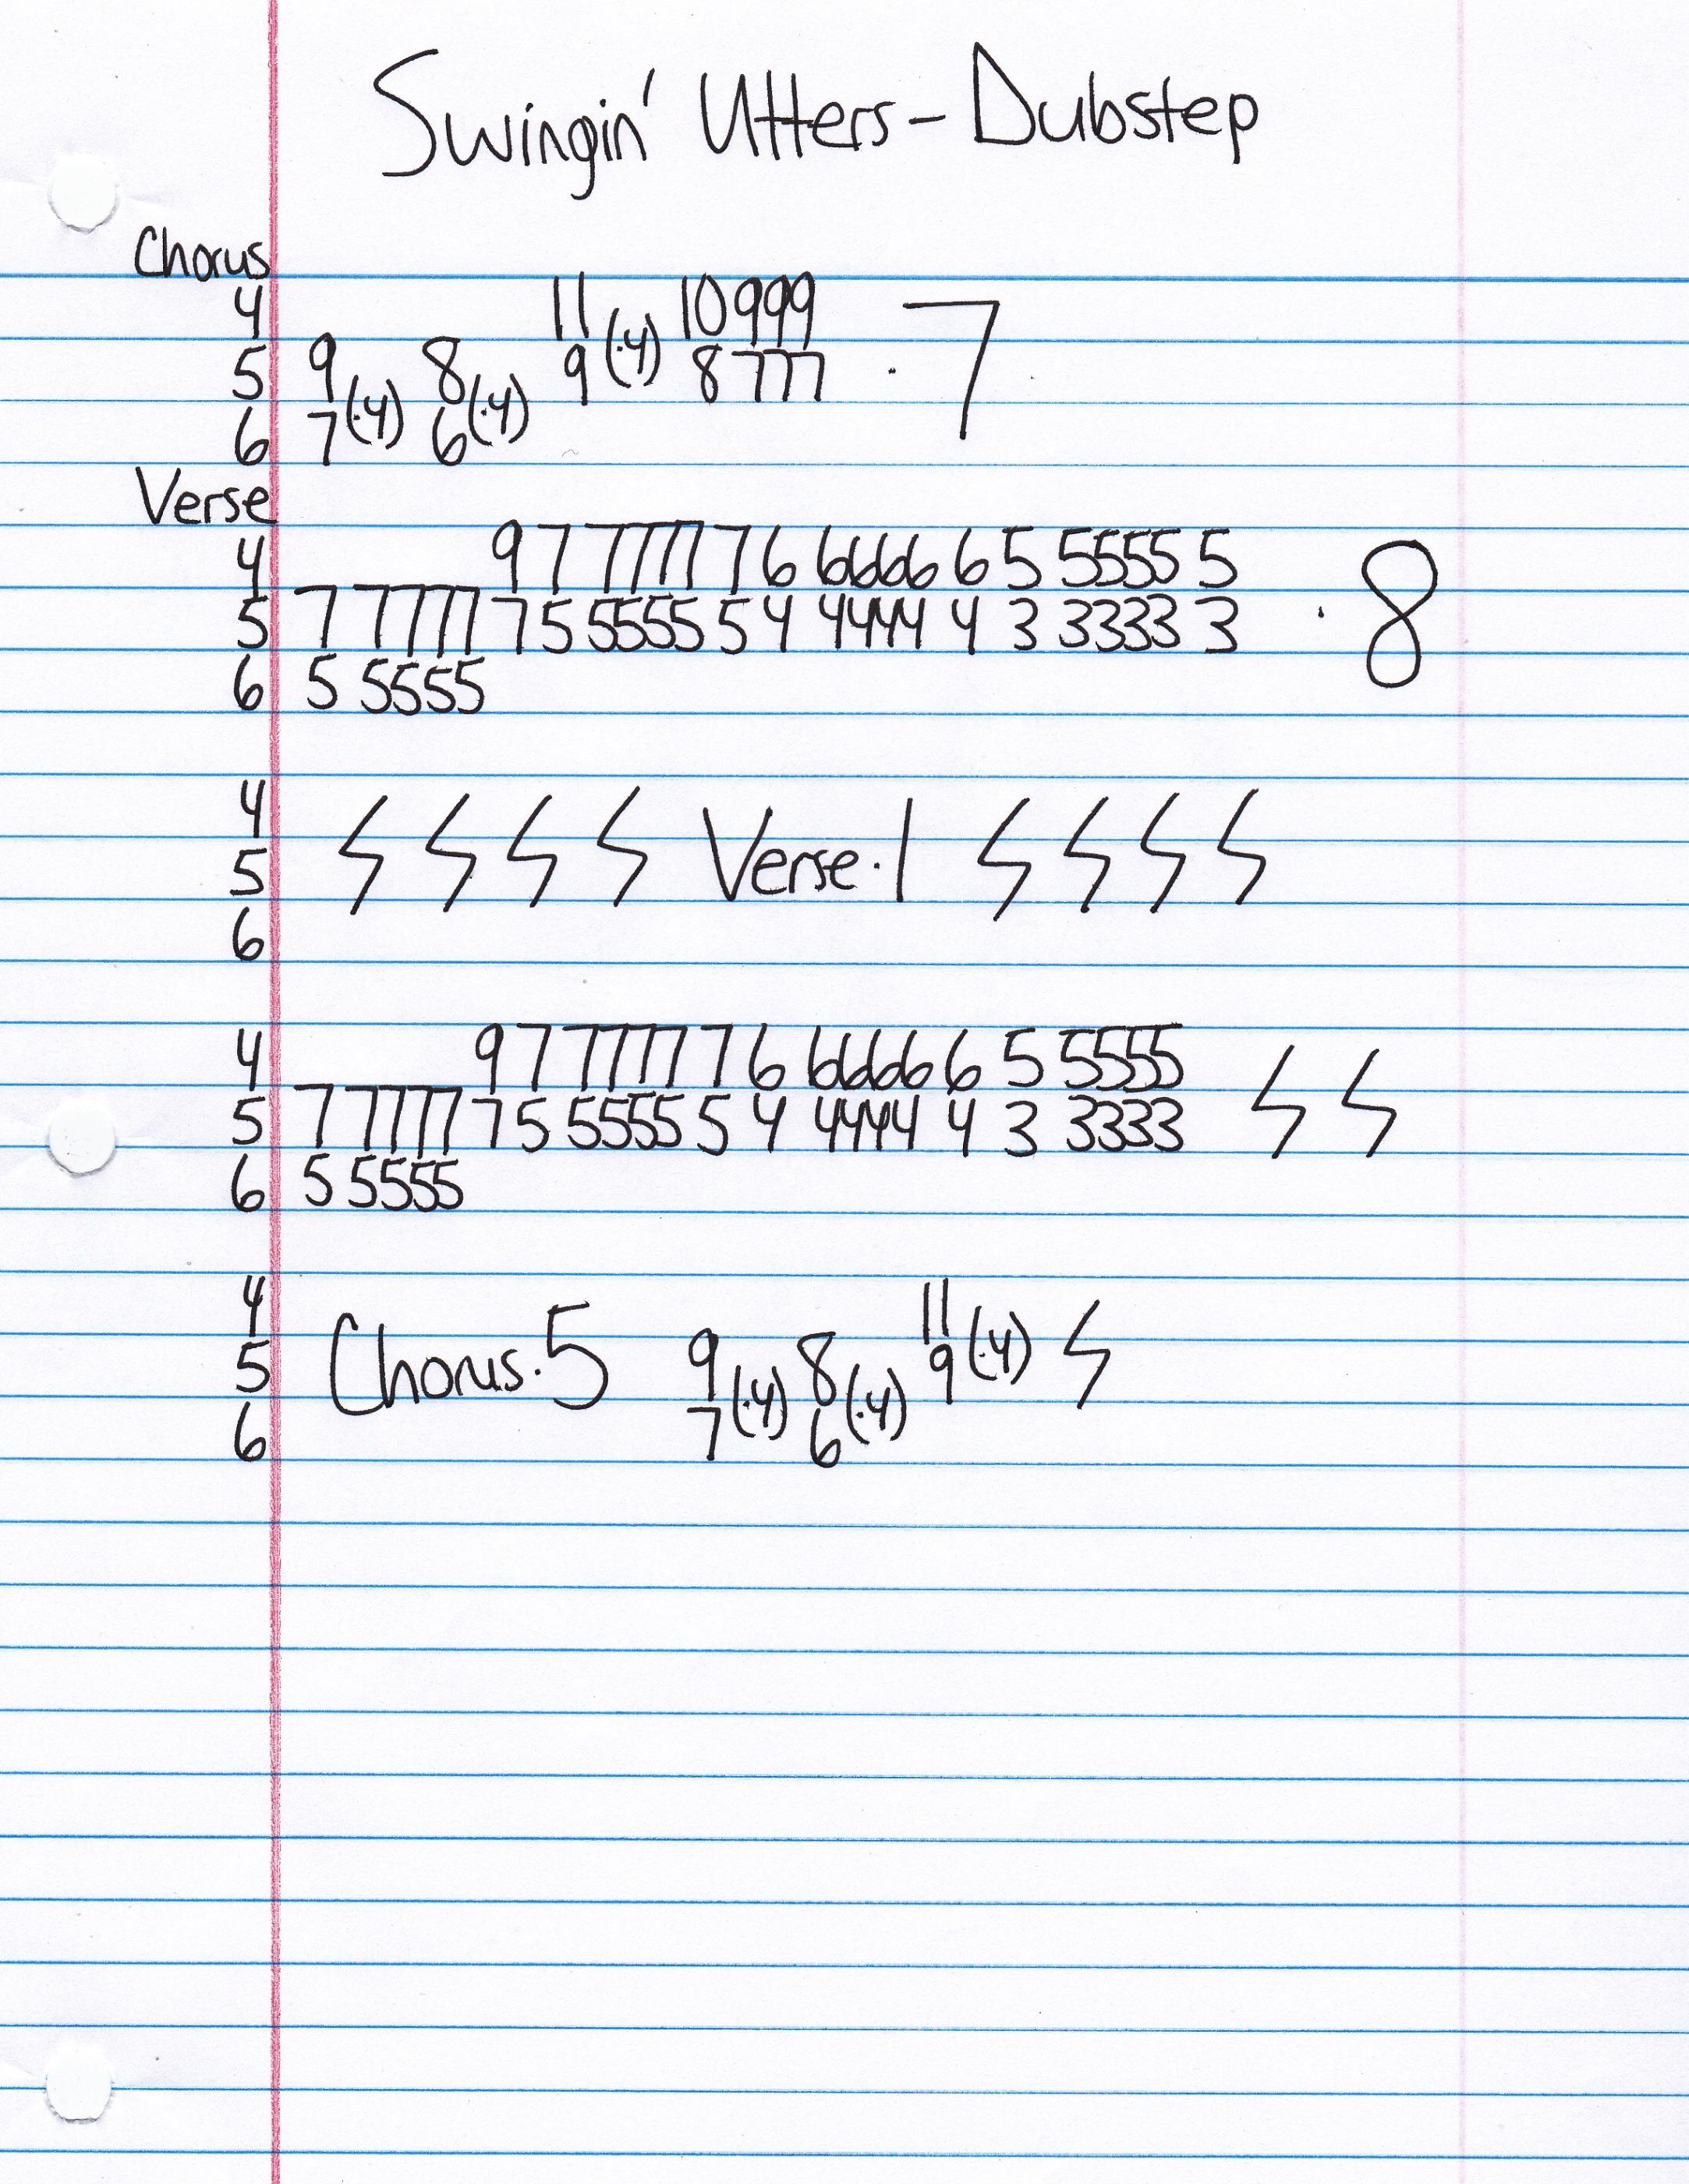 Swingin' Utters - Dubstep
Chorus
4 11 (·4) 10 9 9 9
5 9 (·4) 8 (·4) 9 8 7 7 7 · 7
6 7 6
Verse
4 9 7 7 7 7 7 7 6 6 6 6 6 6 5 5 5 5 5 5
5 7 7 7 7 7 7 5 5 5 5 5 5 4 4 4 4 4 4 3 3 3 3 3 3 · 8
6 5 5 5 5 5
4
5 Verse·1
6
4 9 7 7 7 7 7 7 6 6 6 6 6 6 5 5 5 5 5
5 7 7 7 7 7 7 5 5 5 5 5 5 4 4 4 4 4 4 3 3 3 3 3
6 5 5 5 5 5
4 11 (·4)
5 Chorus·5 9 (·4) 8 (·4) 9
6 7 6